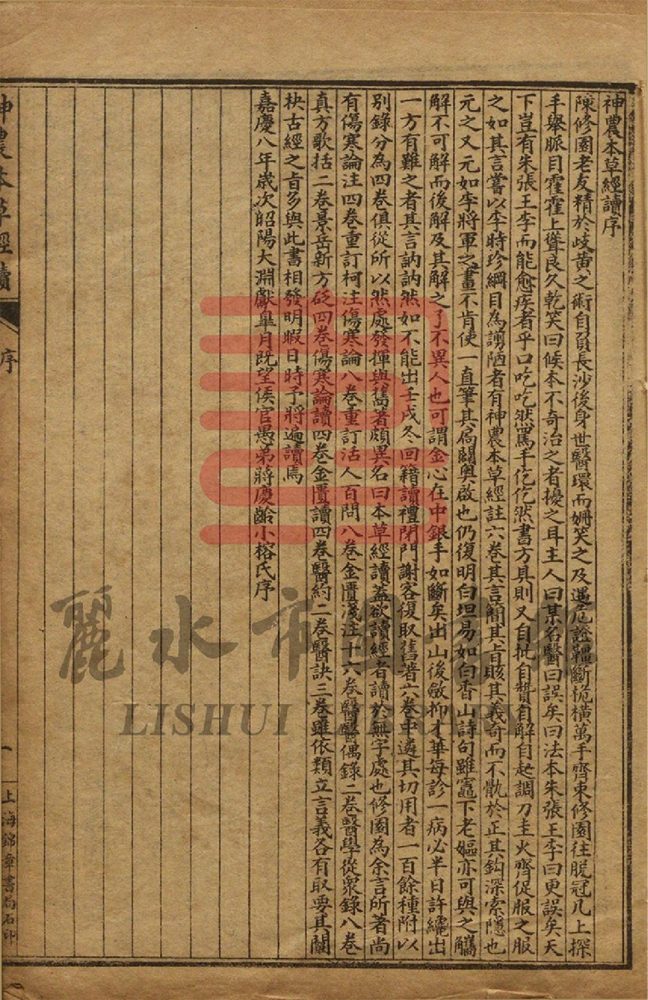 神農本草經讀序
陳修園老友精於歧黃之術自負長沙後身世醫環而姍笑之及遇危證韁斷桅橫萬手齊束修園往脫冠几上探
手舉脈目霍霍上聳良久乾笑曰候本不奇治之者擾之耳主人曰某名醫曰誤矣曰法本朱張王李曰更誤矣天
下豈有朱張王李而能愈疾者乎口吃吃然罵手仡仡然書方具則又自批自贊自解自起調刀圭火齊促服之服
之如其言嘗以李時珍綱目為謭陋者有神農本草經註六卷其言簡其旨賅其義奇而不骩於正其鈎深索隱也
元之又元如李將軍之畫不肯使一直筆其扃闢奧啟也仍復明白坦易如白香山詩句雖竈下老嫗亦可與之觿
解不可解而後解及其解之了不異人也可謂金心在中銀手如斷矣出山後斂抑才華每診一病必半日許纔出
一方有難之者其言訥訥然如不能出壬戌冬回籍讀禮閉門謝客復取舊著六卷中遴其切用者一百餘種附以
別錄分為四卷俱從所以然處發揮與舊著頗異名曰本草經讀蓋欲讀經者讀於無字處也修園為余言所著尚
有傷寒論注四卷重訂柯注傷寒論八卷重訂活人百問八卷金匱淺注十六卷醫醫偶錄二卷醫學從衆錄八卷
真方歌括二卷景岳新方砭四卷傷寒論讀四卷金匱讀四卷醫約二卷醫訣三卷雖依類立言義各有取要其闡
抉古經之旨多與此書相發明暇日時予將遍讀焉
嘉慶八年歲次昭陽大淵獻臯月既望侯官愚弟蔣慶齡小榕氏序
神農本草經讀
序
一
上海錦章書局石印
麗水市圖書館
LISHUI LIBRARY